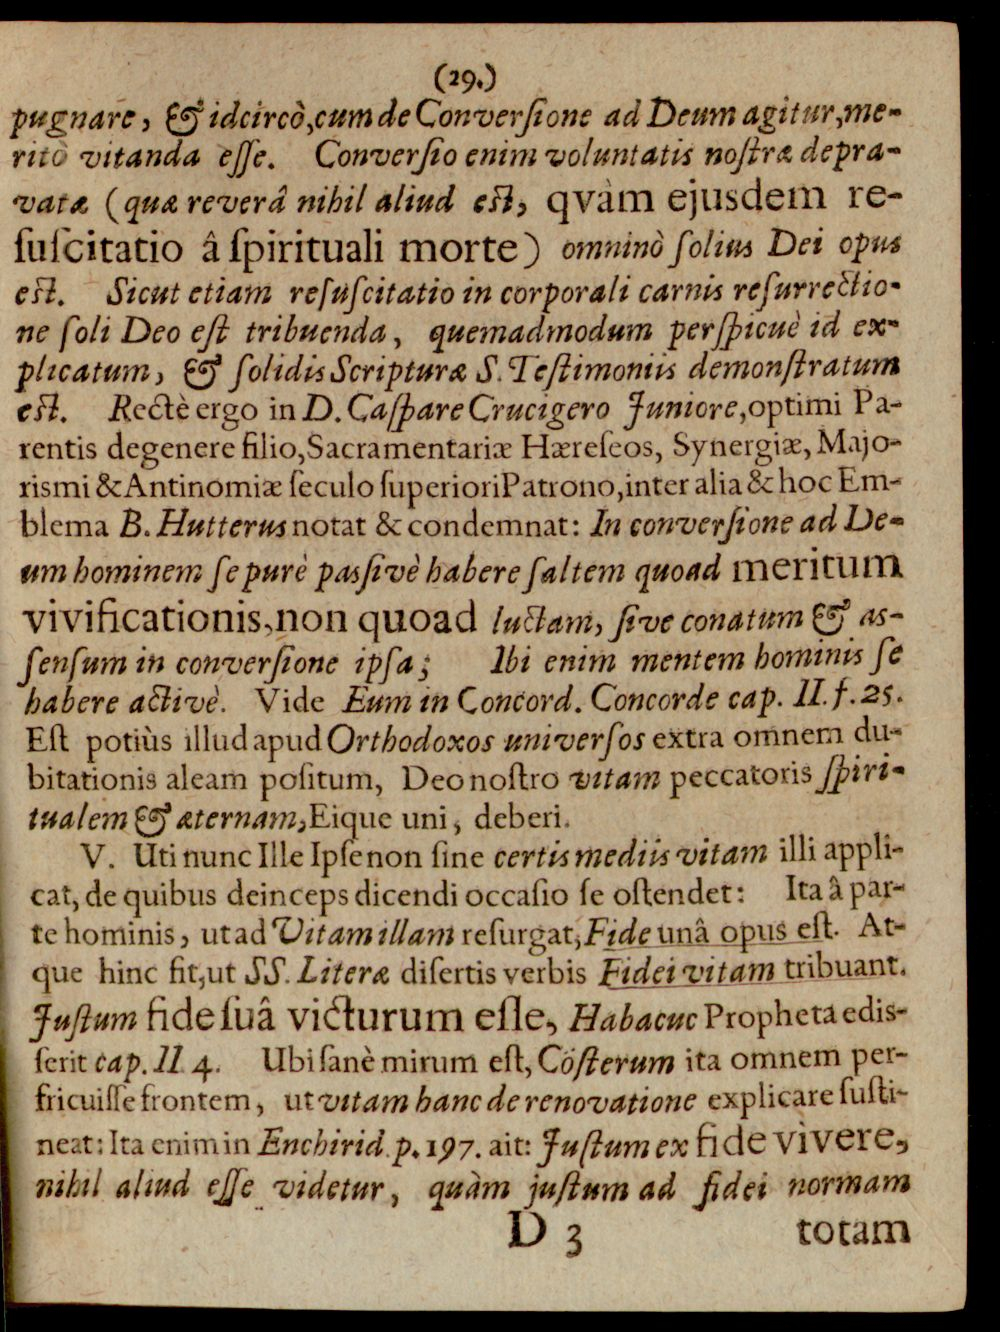 (29.)
pugnare, & idcircò, cum de Converſione ad Deum agitur, me-
ritò vitanda eſſe. Converſio enim voluntatis noſtræ depra-
vatæ (quæ reverâ nihil aliud eſt, qvàm ejusdem re-
ſuſcitatio â ſpirituali morte) omninò ſolius Dei opus
eſt. Sicut etiam reſuſcitatio in corporali carnis reſurrectio-
ne ſoli Deo eſt tribuenda, quemadmodum perſpicuè id ex-
plicatum, & ſolidis Scripturæ S. Teſtimoniis demonſtratum
eſt. Rectè ergo in D. Caſpare Crucigero Juniore, optimi Pa-
rentis degenere filio, Sacramentariæ Hæreſeos, Synergiæ, Majo-
rismi & Antinomiæ ſeculo ſuperiori Patrono, inter alia & hoc Em-
blema B. Hutterus notat & condemnat: In converſione ad De-
um hominem ſe purè paſſivè habere ſaltem quoad meritum
vivificationis, non quoad luctam, ſive conatum & as-
ſenſum in converſione ipſa; Ibi enim mentem hominis ſe
habere activè. Vide Eum in Concord. Concorde cap. II. f. 25.
Eſt potiùs illud apud Orthodoxos univerſos extra omnem du-
bitationis aleam poſitum, Deo noſtro vitam peccatoris ſpiri-
tualem & æternam, Eique uni, deberi.
V. Uti nunc Ille Ipſe non ſine certis mediis vitam illi appli-
cat, de quibus deinceps dicendi occaſio ſe oſtendet: Ita â par-
te hominis, ut ad Vitam illam reſurgat, Fide unâ opus eſt. At-
que hinc fit, ut SS. Literæ diſertis verbis Fidei vitam tribuant.
Juſtum fide ſuâ victurum eſſe, Habacuc Propheta edis-
ſerit cap. II 4. Ubi ſanè mirum eſt, Cöſterum ita omnem per-
fricuiſſe frontem, ut vitam hanc de renovatione explicare ſuſti-
neat: Ita enim in Enchirid. p. 197. ait: Juſtum ex fide vìvere,
nihil aliud eſſe videtur, quàm juſtum ad fidei normam
D 3 totam